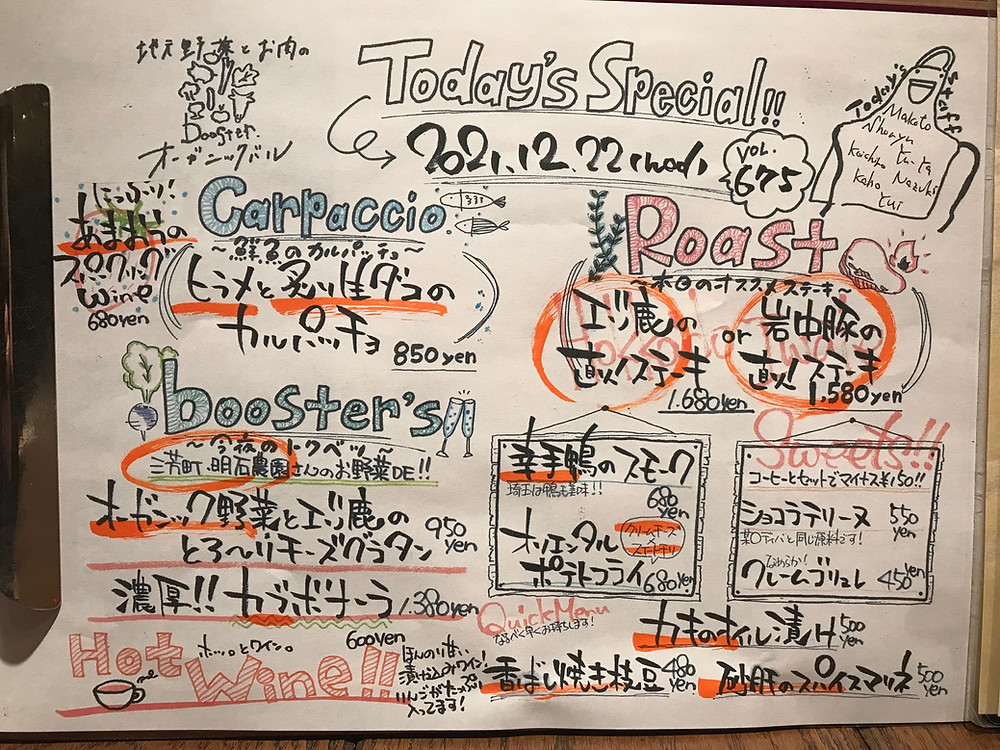 地元野菜とお肉の
Booster.
オーガニックバル
Today's Special!!
2021.12.22(wed)
VOL.
675
Today's staff
Makoto
Shunya
Yu-ta
Kaho
Yui
にっぷり!
あまおうの
スパークリング
Wine
680yen
Carpaccio
～鮮魚のカルパッチョ～
ヒラメと炙り生ダコの
カルパッチョ
850yen
Roast
～本日のオススメステーキ～
エゾ鹿の
直火!ステーキ
1.680yen
or
岩中豚の
直火!ステーキ
1.580yen
booster's
～今夜のトクベツ～
三芳町.明石農園さんのお野菜DE!!
オーガニック野菜とエゾ鹿の
とろ〜りチーズグラタン
950yen
濃厚!!カルボナーラ
1.380yen
Hot Wine!!
ホッ。とワイン。
600yen
ほんのり甘い、
漬け込みワイン!
りんごがたっぷり
入ってます!
幸手鴨のスモーク
埼玉は鴨も美味!!
680yen
オリエンタル
ポテトフライ
クリームチーズ
×
スイートチリ
680yen
Sweets!!
コーヒーとセットでマイナス¥150!!
ショコラテリーヌ
550yen
某〇ディバと同じ原料です!
なめらか!
クレームブリュレ
450yen
Quick Menu
なるべく早くお持ちします!
カキのオイル漬け
500yen
香ばし焼き枝豆
480yen
砂肝のスパイスマリネ
500yen